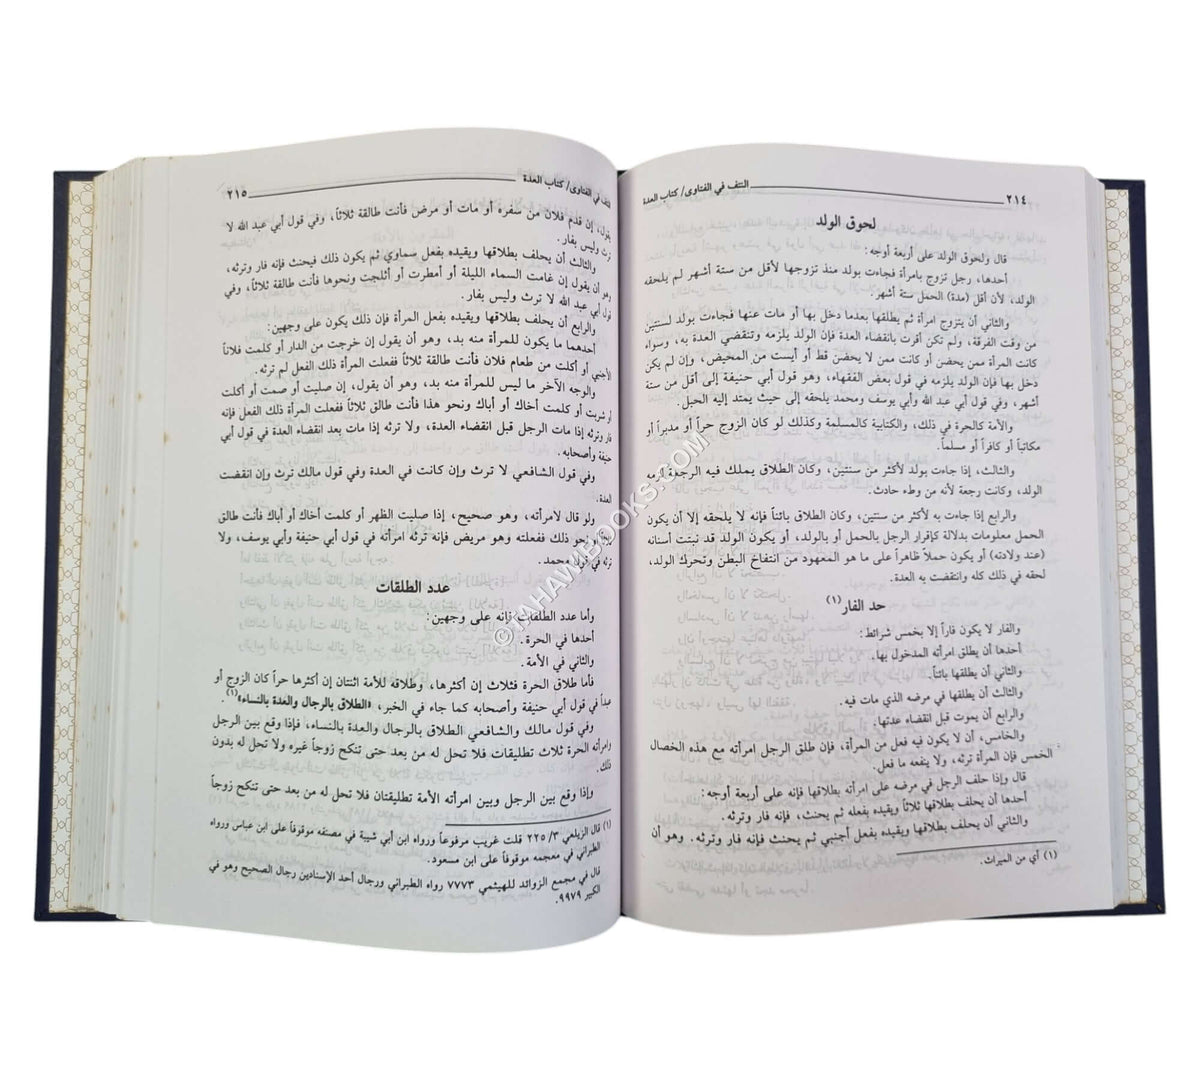 ٢١٤
النتف في الفتاوى/ كتاب العدة
لحوق الولد
قال ولحوق الولد على أربعة أوجه:
أحدها، رجل تزوج بامرأة فجاءت بولد منذ تزوجها لأقل من ستة أشهر لم يلحقه
الولد، لأن أقل (مدة) الحمل ستة أشهر.
والثاني أن يتزوج امرأة ثم يطلقها بعدما دخل بها أو مات عنها فجاءت بولد لسنتين
من وقت الفرقة، ولم تكن أقرت بانقضاء العدة فإن الولد يلزمه وتنقضي العدة به، وسواء
كانت المرأة ممن يحضن أو كانت ممن لا يحضن قط أو أيست من المحيض، وإن لم يكن
دخل بها فإن الولد يلزمه في قول بعض الفقهاء، وهو قول أبي حنيفة إلى أقل من ستة
أشهر، وفي قول أبي عبد الله وأبي يوسف ومحمد يلحقه إلى حيث يمتد إليه الحبل.
والأمة كالحرة في ذلك، والكتابية كالمسلمة وكذلك لو كان الزوج حراً أو مدبراً أو
مكاتباً أو كافراً أو مسلماً.
والثالث، إذا جاءت بولد لأكثر من سنتين، وكان الطلاق يملك فيه الرجعة لزمه
الولد، وكانت رجعة لأنه من وطء حادث.
والرابع إذا جاءت به لأكثر من سنتين، وكان الطلاق بائناً فإنه لا يلحقه إلا أن يكون
الحمل معلومات بدلالة كإقرار الرجل بالحمل أو بالولد، أو يكون الولد قد نبتت أسنانه
(عند ولادته) أو يكون حملاً ظاهراً على ما هو المعهود من انتفاخ البطن وتحرك الولد،
لحقه في ذلك كله وانتقضت به العدة.
حد الفار(١)
والفار لا يكون فاراً إلا بخمس شرائط:
أحدها أن يطلق امرأته المدخول بها.
والثاني أن يطلقها بائناً.
والثالث أن يطلقها في مرضه الذي مات فيه.
والرابع أن يموت قبل انقضاء عدتها.
والخامس، أن لا يكون فيه فعل من المرأة، فإن طلق الرجل امرأته مع هذه الخصال
الخمس فإن المرأة ترثه، ولا ينفعه ما فعل.
قال وإذا حلف الرجل في مرضه على امرأته بطلاقها فإنه على أربعة أوجه:
أحدها أن يحلف بطلاقها ثلاثاً ويقيده بفعله ثم يحنث، فإنه فار وترثه.
والثاني أن يحلف بطلاقها ويقيده بفعل أجنبي ثم يحنث فإنه فار وترثه. وهو أن
(١) أي من الميراث.
النتف في الفتاوى/ كتاب العدة
٢١٥
يقول، إن قدم فلان من سفره أو مات أو مرض فأنت طالقة ثلاثاً، وفي قول أبي عبد الله لا
ترث وليس بفار.
والثالث أن يحلف بطلاقها ويقيده بفعل سماوي ثم يكون ذلك فيحنث فإنه فار وترثه،
وهو أن يقول إن غامت السماء الليلة أو أمطرت أو أثلجت ونحوها فأنت طالقة ثلاثاً، وفي
قول أبي عبد الله لا ترث وليس بفار.
والرابع أن يحلف بطلاقها ويقيده بفعل المرأة فإن ذلك يكون على وجهين:
أحدهما ما يكون للمرأة منه بد، وهو أن يقول إن خرجت من الدار أو كلمت فلاناً
الأجنبي أو أكلت من طعام فلان فأنت طالقة ثلاثاً ففعلت المرأة ذلك الفعل لم ترثه.
والوجه الآخر ما ليس للمرأة منه بد، وهو أن يقول، إن صليت أو صمت أو أكلت
أو شربت أو كلمت أخاك أو أباك ونحو هذا فأنت طالق ثلاثاً ففعلت المرأة ذلك الفعل فإنه
فار وترثه إذا مات الرجل قبل انقضاء العدة، ولا ترثه إذا مات بعد انقضاء العدة في قول أبي
حنيفة وأصحابه.
وفي قول الشافعي لا ترث وإن كانت في العدة وفي قول مالك ترث وإن انقضت
العدة.
ولو قال لامرأته، وهو صحيح، إذا صليت الظهر أو كلمت أخاك أو أباك فأنت طالق
ثلاثاً ونحو ذلك ففعلته وهو مريض فإنه ترثه امرأته في قول أبي حنيفة وأبي يوسف، ولا
ترثه في قول محمد.
عدد الطلقات
وأما عدد الطلقات فإنه على وجهين:
أحدها في الحرة.
والثاني في الأمة.
فأما طلاق الحرة فثلاث إن أكثرها، وطلاقه للأمة اثنتان إن أكثرها حراً كان الزوج أو
عبداً في قول أبي حنيفة وأصحابه كما جاء في الخبر، «الطلاق بالرجال والعدة بالنساء»(١).
وفي قول مالك والشافعي الطلاق بالرجال والعدة بالنساء، فإذا وقع بين الرجل
وامرأته الحرة ثلاث تطليقات فلا تحل له من بعد حتى تنكح زوجاً غيره ولا تحل له بدون
ذلك.
وإذا وقع بين الرجل وبين امرأته الأمة تطليقتان فلا تحل له من بعد حتى تنكح زوجاً
(١) قال الزيلعي ٣/ ٢٢٥ قلت غريب مرفوعاً ورواه ابن أبي شيبة في مصنفه موقوفاً على ابن عباس ورواه
الطبراني في معجمه موقوفاً على ابن مسعود.
قال في مجمع الزوائد للهيثمي ٧٧٧٣ رواه الطبراني ورجال أحد الإسنادين رجال الصحيح وهو في
الكبير ٩٩٧٩.
©TAHAWIBOOKS.COM